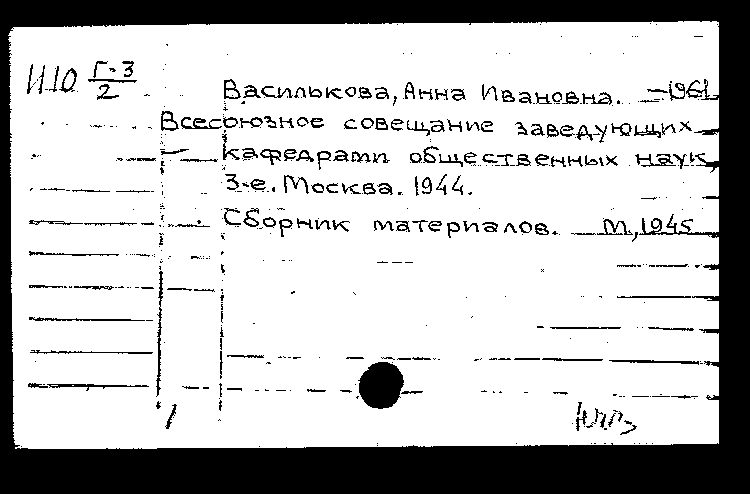 И10 Г-3/2
Василькова, Анна Ивановна. —1961
Всесоюзное совещание заведующих
кафедрами общественных наук,
3-е. Москва. 1944.
Сборник материалов. М, 1945
1